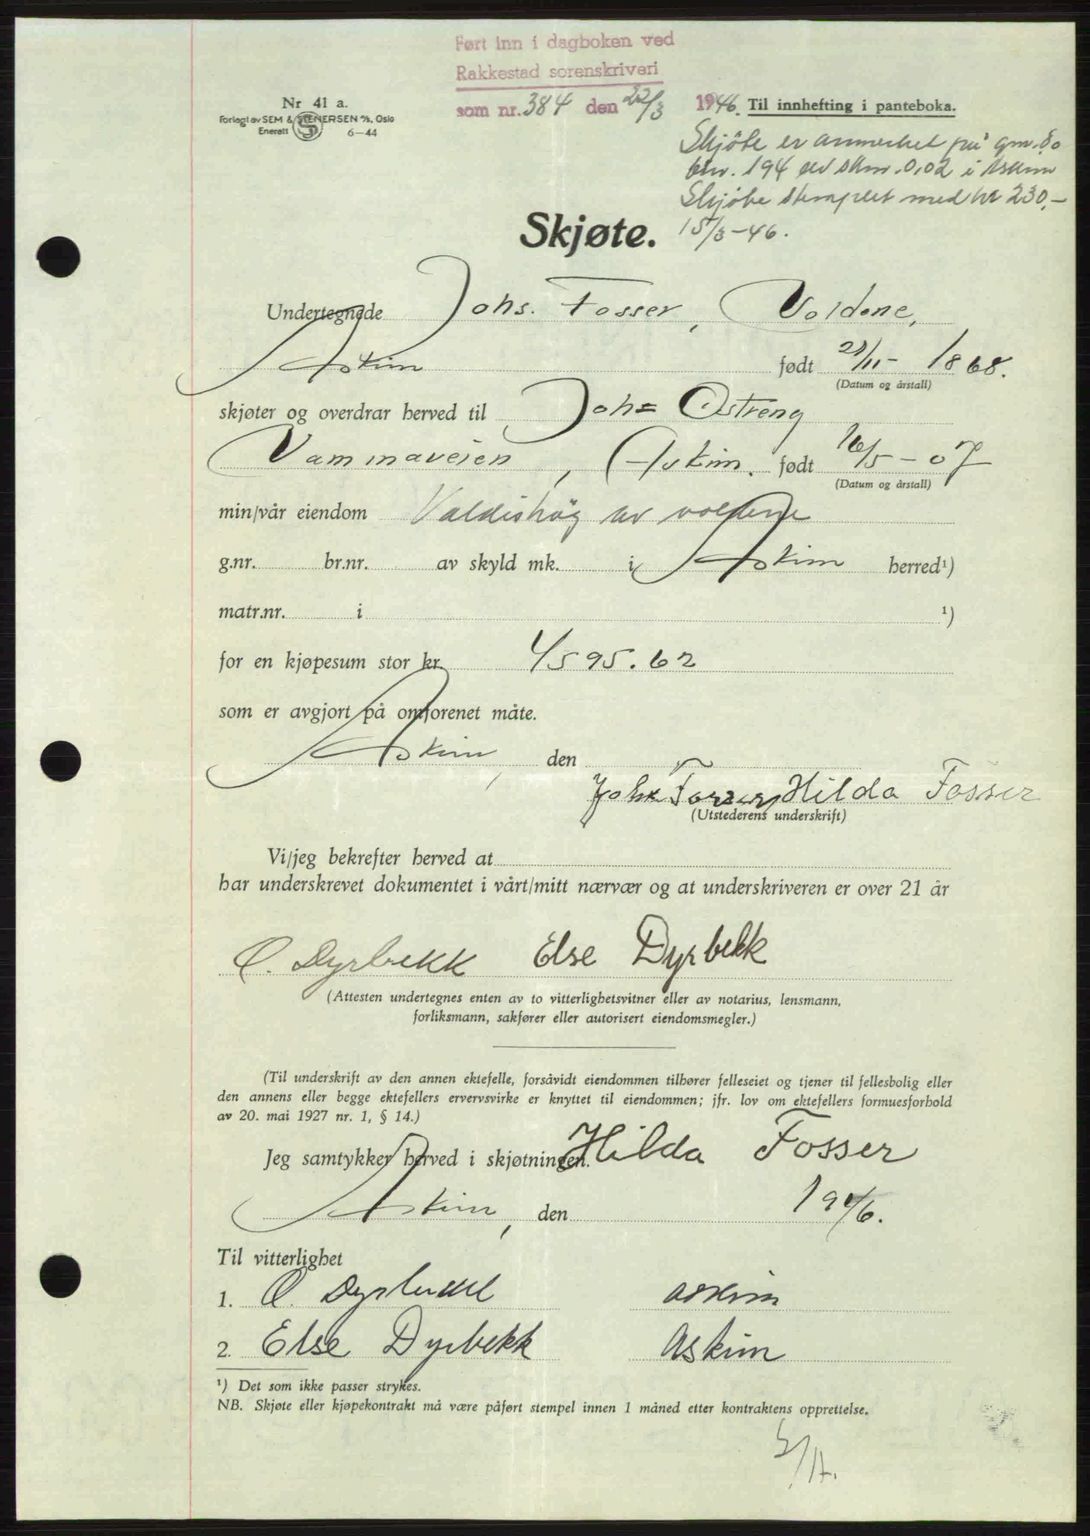 Ført inn i dagboken ved
Rakkestad sorenskriveri
som nr. 384 den 22/3 1946. Til innhefting i panteboka.
Nr 41 a.
Forlagt av SEM & STENERSEN A/S, Oslo
Enerett 6-44
Skjøte er anmerket på gnr. 80
bnr. 194 av skm. 0,02 i Askim
Skjøte stemplet med kr 230,-
15/3-46.
Skjøte.
Undertegnede Johs. Fosser, Voldene,
Askim født 21/11- 1868.
(Datum og årstall)
skjøter og overdrar herved til Johs Østreng
Vammaveien, Askim. født 16/5-07
(Datum og årstall)
min/vår eiendom Valdishøg av voldene
g.nr. br.nr. av skyld mk. i Askim herred¹)
matr.nr. i ¹)
for en kjøpesum stor kr. 4595.62
som er avgjort på omforenet måte.
Askim, den
Johs Fosser Hilda Fosser
(Utstederens underskrift)
Vi/jeg bekrefter herved at
har underskrevet dokumentet i vårt/mitt nærvær og at underskriveren er over 21 år
O. Dyrbekk Else Dyrbekk
(Attesten undertegnes enten av to vitterlighetsvitner eller av notarius, lensmann,
forliksmann, sakfører eller autorisert eiendomsmegler.)
(Til underskrift av den annen ektefelle, forsåvidt eiendommen tilhører felleseiet og tjener til fellesbolig eller
den annens eller begge ektefellers ervervsvirke er knyttet til eiendommen; jfr. lov om ektefellers formuesforhold
av 20. mai 1927 nr. 1, § 14.)
Jeg samtykker herved i skjøtningen. Hilda Fosser
Askim, den 1946.
Til vitterlighet
1. O. Dyrbekk Askim
2. Else Dyrbekk Askim
¹) Det som ikke passer strykes.
NB. Skjøte eller kjøpekontrakt må være påført stempel innen 1 måned etter kontraktens opprettelse.